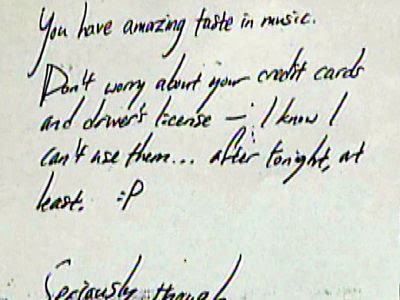 You have amazing taste in music.
Don't worry about your credit cards
and driver's license — I know I
can't use them... after tonight, at
least. :P
Seriously though